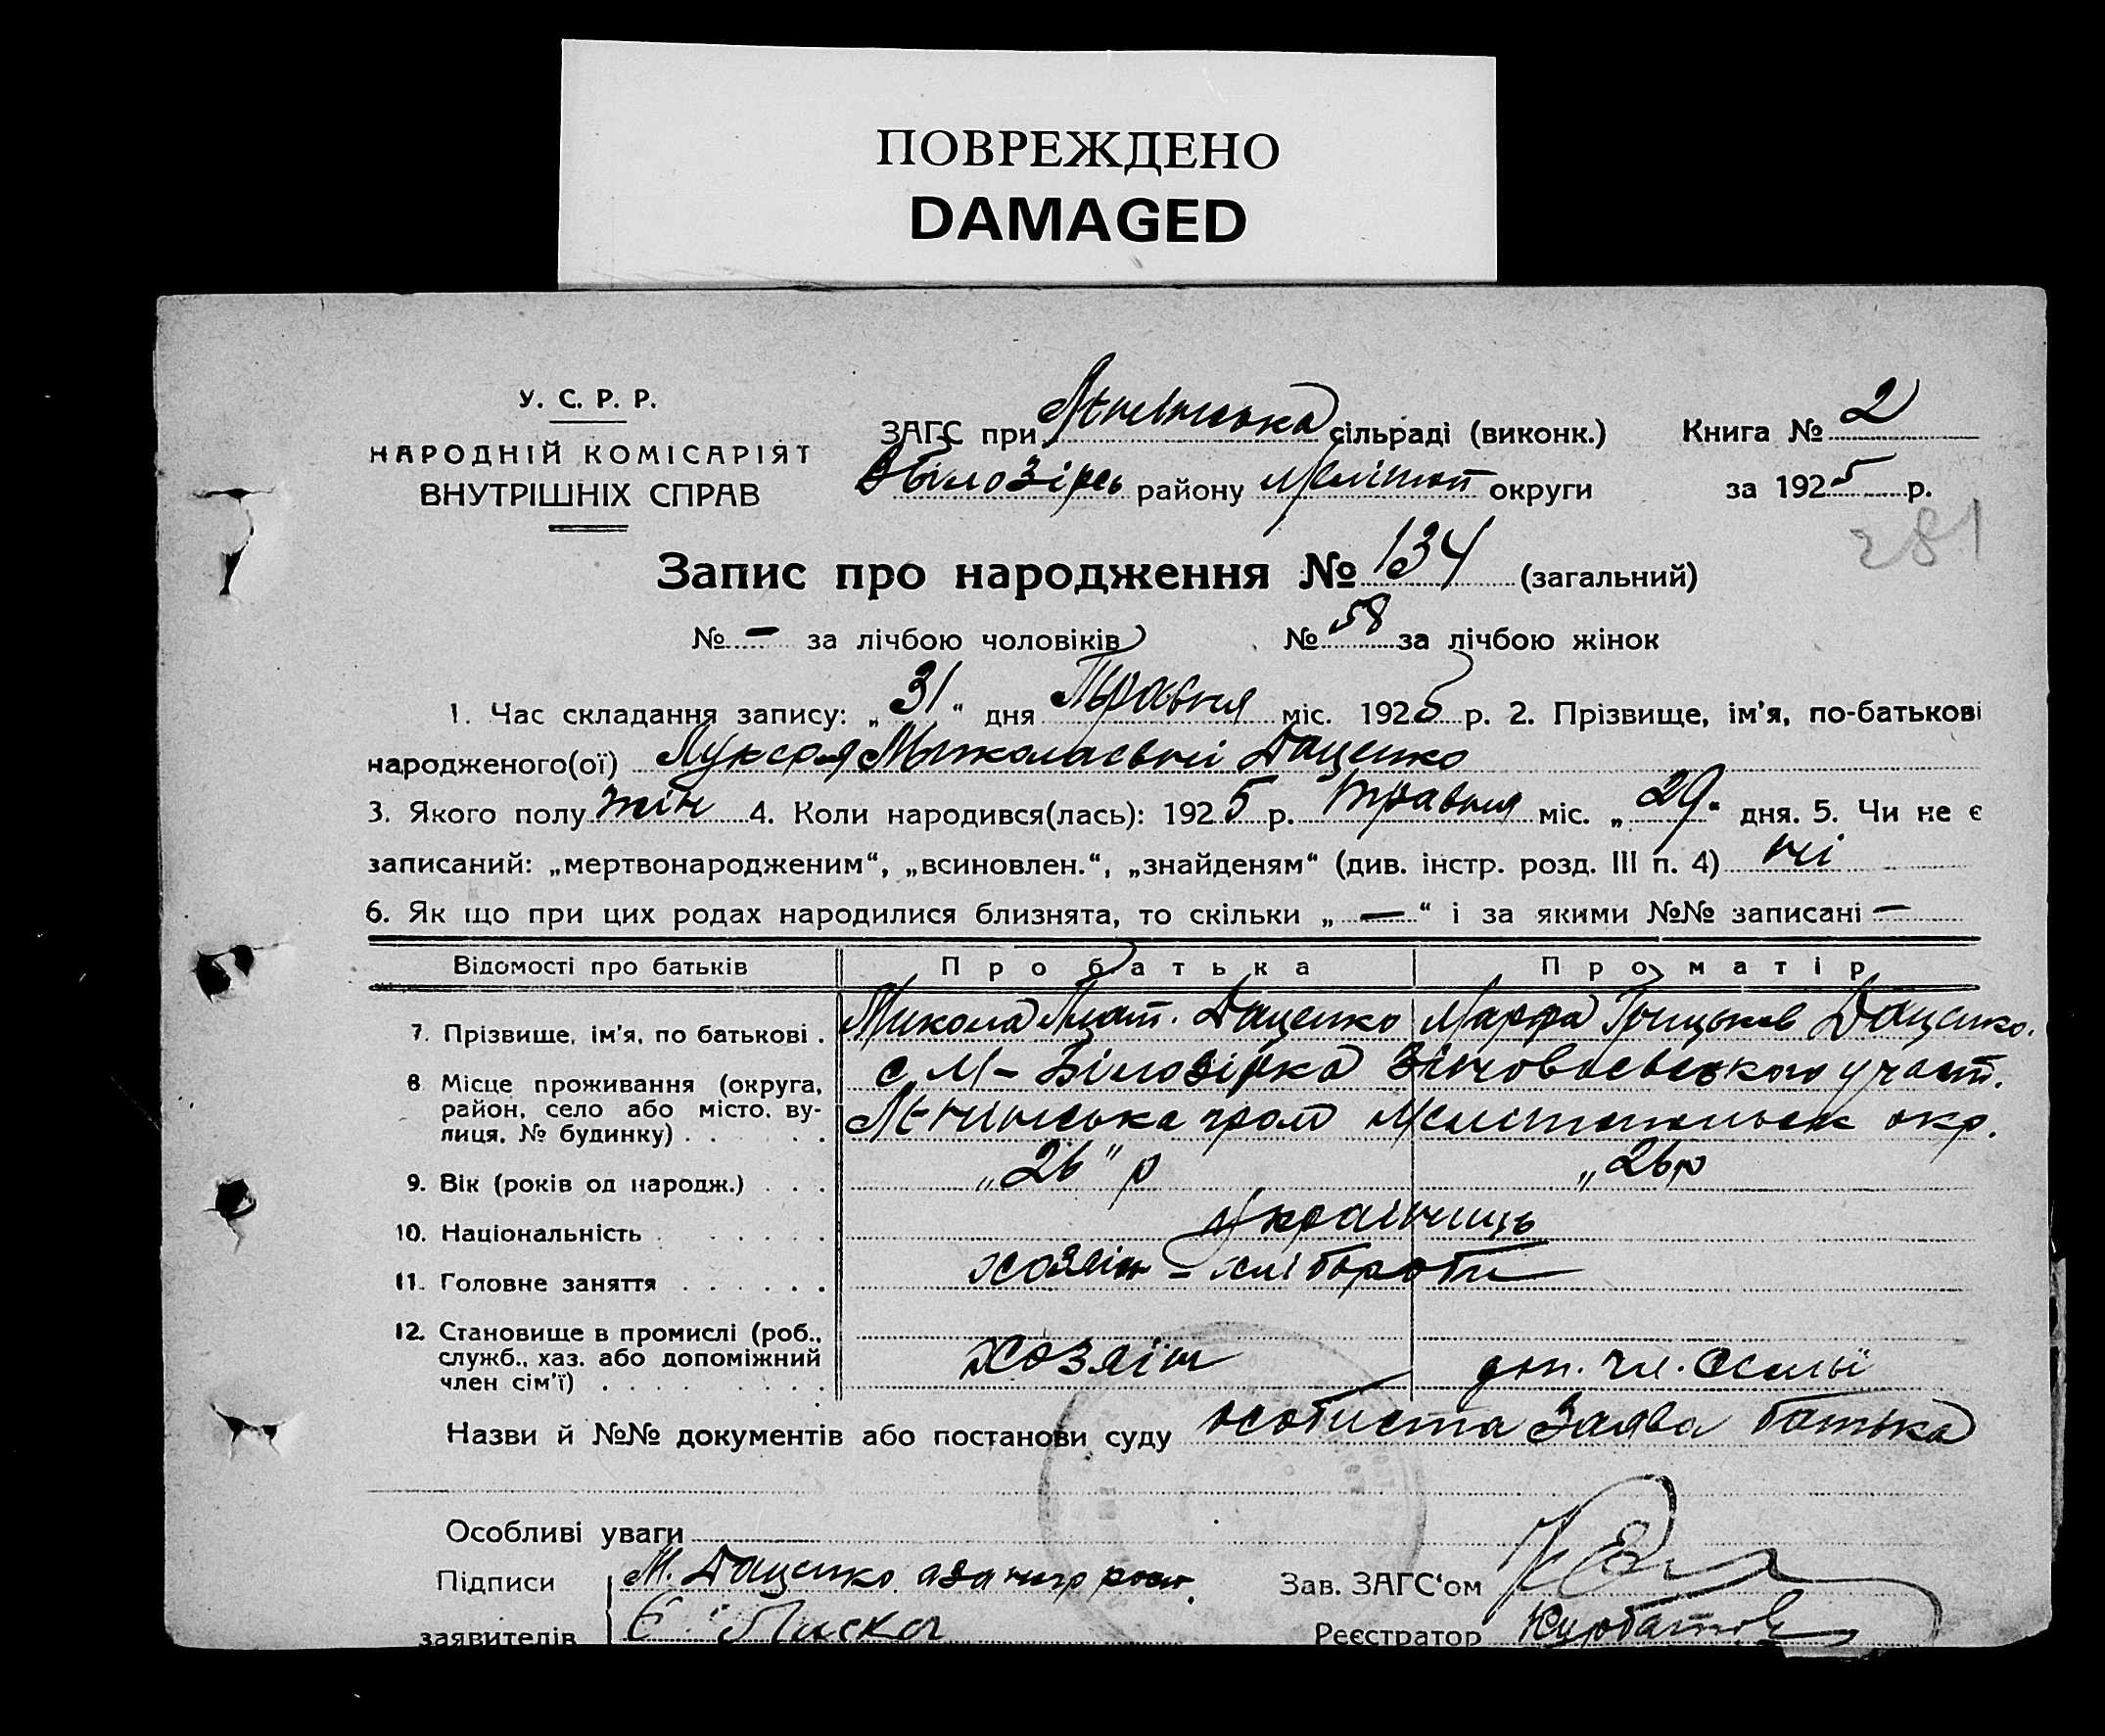 ПОВРЕЖДЕНО
DAMAGED
У. С. Р. Р.
НАРОДНІЙ КОМІСАРІЯТ
ВНУТРІШНІХ СПРАВ
ЗАГС при сільраді (виконк.) Книга № 2
району Мелітоп округи за 1925 р.
281
Запис про народження № 134 (загальний)
№ — за лічбою чоловіків № 58 за лічбою жінок
1. Час складання запису: „31“ дня Травня міс. 1925 р. 2. Прізвище, ім'я, по-батькові
народженого(ої) Миколаєвні Даценко
3. Якого полу жін 4. Коли народився(лась): 1925 р. травня міс. „29“ дня. 5. Чи не є
записаний: „мертвонародженим“, „всиновлен.“, „знайденям“ (див. інстр. розд. III п. 4) ні
6. Як що при цих родах народилися близнята, то скільки „—“ і за якими №№ записані —
Відомості про батьків Про батька Про матір
7. Прізвище, ім'я, по батькові . Микола Плат. Даценко Марфа Грицьков Даценко.
8 Місце проживання (округа, с. М-Білозірка участ.
район, село або місто, ву-
лиця, № будинку) . . . . гром окр.
9. Вік (років од народж.) . . . „26“ р „26 р
10. Національність . . . . . . Українців
11. Головне заняття . . . . . . хозяін - хлібороби
12. Становище в промислі (роб.,
служб., хаз. або допоміжний хозяін доп. чл. сем'ї
член сім'ї) . . . . . . .
Назви й №№ документів або постанови суду особиста заява батька
Особливі уваги
Підписи М. Даценко Зав. ЗАГС‘ом
заявителів Є. Реєстратор Курбатов